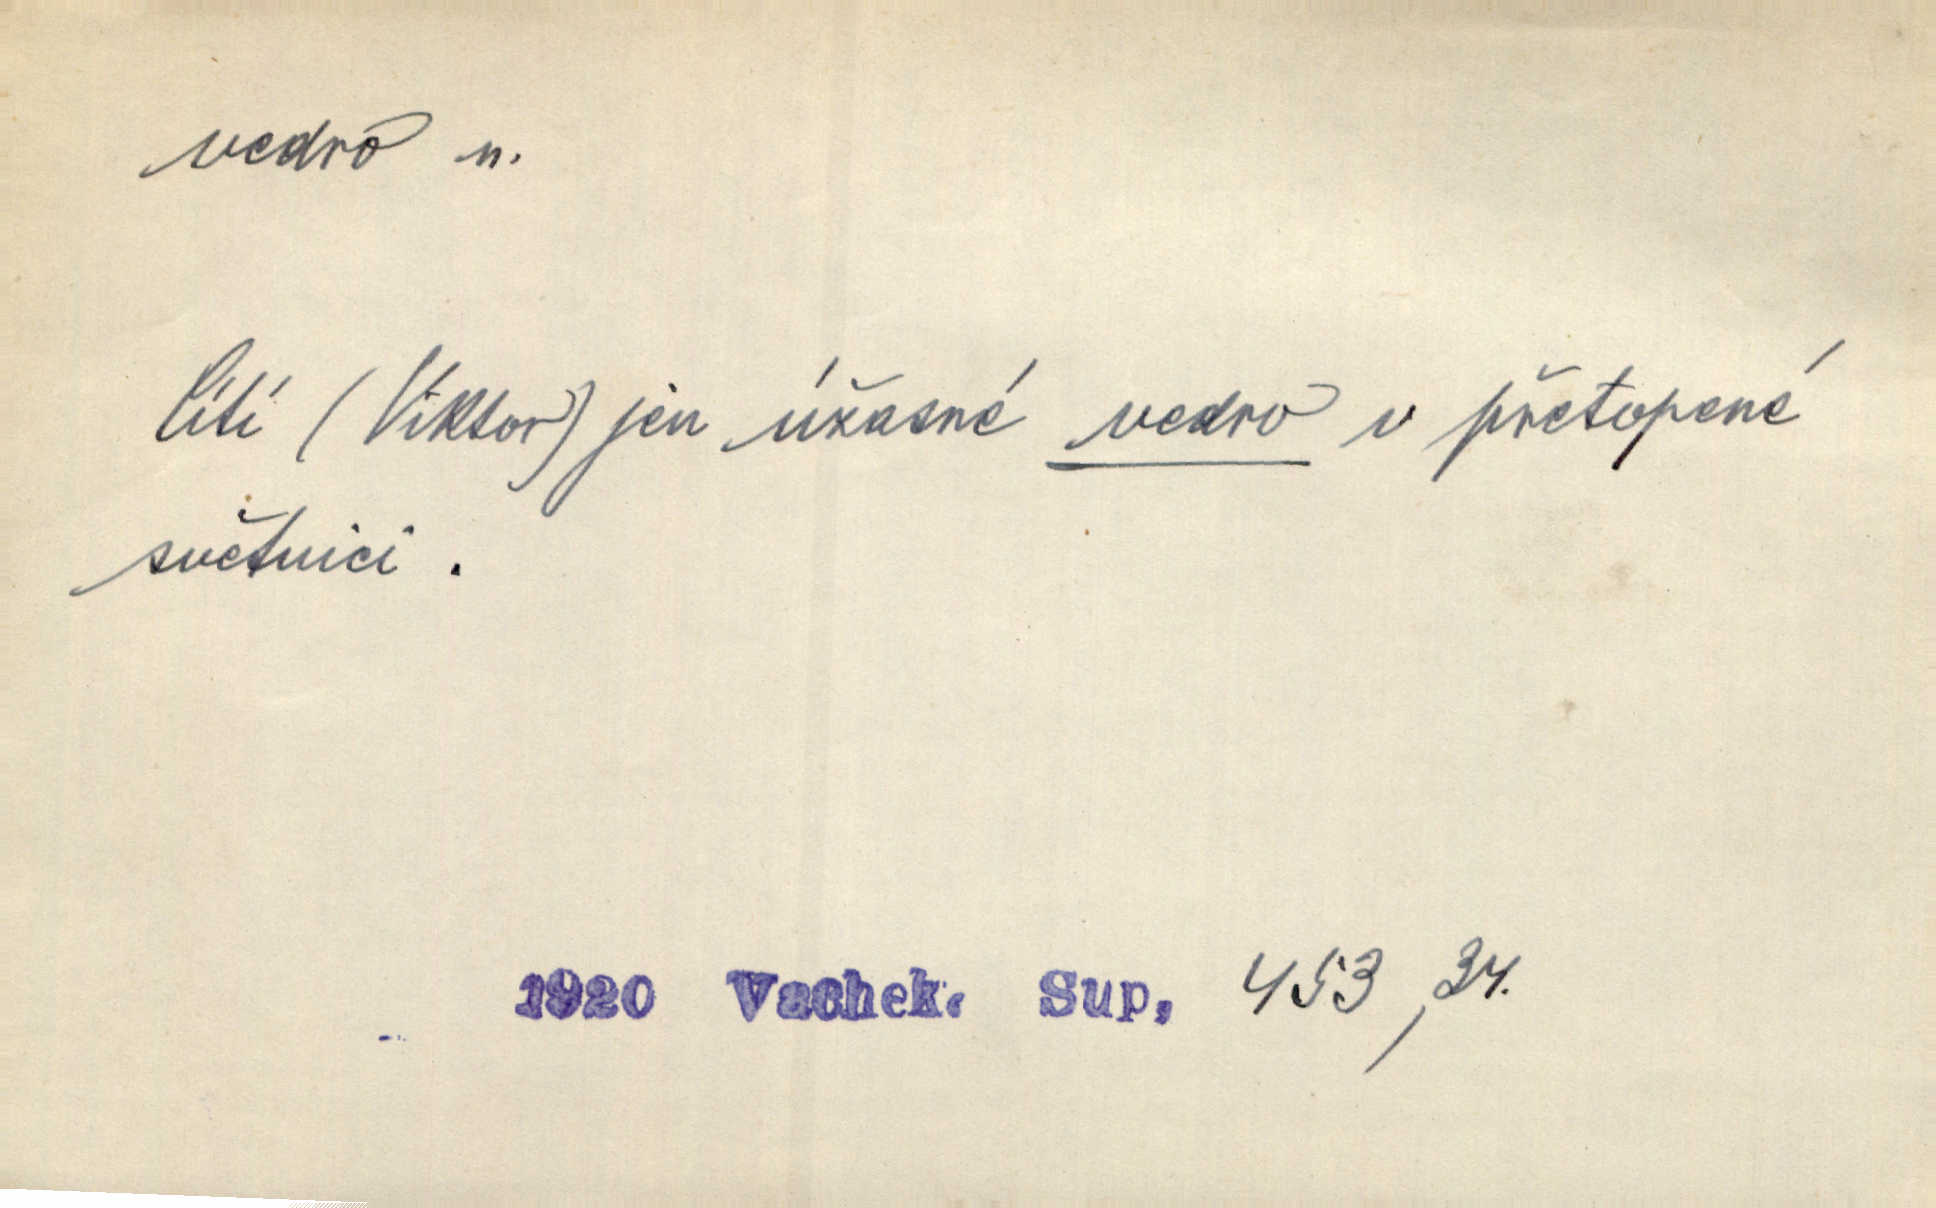 vedro n.
Cítí (Viktor) jen úžasné vedro v přetopené
světnici.
1920 Vachek. Sup, 453, 34.